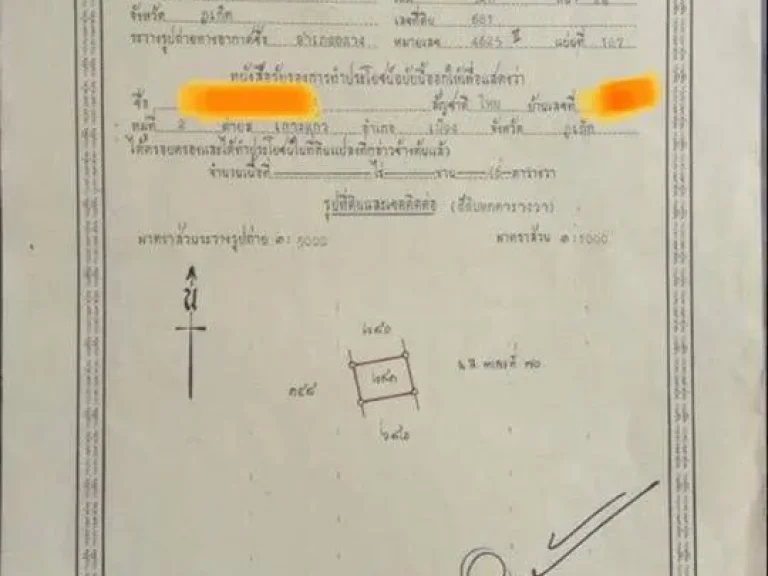 จังหวัด ภูเก็ต เลขที่ดิน 681
ระวางรูปถ่ายทางอากาศชื่อ อำเภอถลาง หมายเลข 4625 II แผ่นที่ 167
หนังสือรับรองการทำประโยชน์ฉบับนี้ออกให้เพื่อแสดงว่า
ชื่อ สัญชาติ ไทย บ้านเลขที่
หมู่ที่ 2 ตำบล เกาะแก้ว อำเภอ เมือง จังหวัด ภูเก็ต
ได้ครอบครองและได้ทำประโยชน์ในที่ดินแปลงดังกล่าวข้างต้นแล้ว
จำนวนเนื้อที่ ไร่ งาน ตารางวา
รูปที่ดินและเขตติดต่อ (สี่สิบหกตารางวา)
มาตราส่วนระวางรูปถ่าย ๑: 5000 มาตราส่วน ๑:1000
น
น.ส. ๓เลขที่ ๗๐